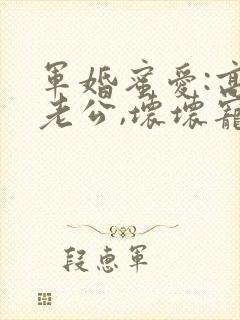 軍婚蜜愛:高
老公,壞壞寵
段惠軍